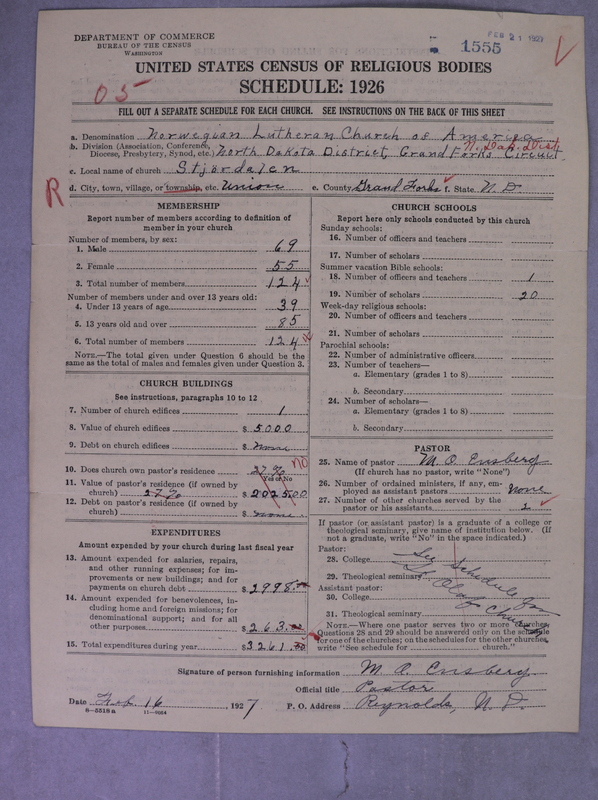 DEPARTMENT OF COMMERCE
BUREAU OF THE CENSUS
WASHINGTON
1555
FEB 21 1927
UNITED STATES CENSUS OF RELIGIOUS BODIES
SCHEDULE: 1926
05
FILL OUT A SEPARATE SCHEDULE FOR EACH CHURCH. SEE INSTRUCTIONS ON THE BACK OF THIS SHEET
a. Denomination Norwegian Lutheran Church of America
b. Division (Association, Conference, Diocese, Presbytery, Synod, etc.) North Dakota District, Grand Forks Circuit
N. Dak. Dist.
c. Local name of church Stjordalen
R
d. City, town, village, or township, etc. Union e. County Grand Forks f. State N D
MEMBERSHIP
Report number of members according to definition of
member in your church
Number of members, by sex:
1. Male 69
2. Female 55
3. Total number of members 124
Number of members under and over 13 years old:
4. Under 13 years of age 39
5. 13 years old and over 85
6. Total number of members 124
NOTE.—The total given under Question 6 should be the
same as the total of males and females given under Question 3.
CHURCH BUILDINGS
See instructions, paragraphs 10 to 12
7. Number of church edifices 1
8. Value of church edifices $ 5000
9. Debt on church edifices $ none
10. Does church own pastor's residence 27%
Yes or No
no
11. Value of pastor's residence (if owned by
church) 27% $ 2025.00
12. Debt on pastor's residence (if owned by
church) $ none
EXPENDITURES
Amount expended by your church during last fiscal year
13. Amount expended for salaries, repairs,
and other running expenses; for im-
provements or new buildings; and for
payments on church debt $ 2998.
14. Amount expended for benevolences, in-
cluding home and foreign missions; for
denominational support; and for all
other purposes $ 263.
15. Total expenditures during year $ 3261.
CHURCH SCHOOLS
Report here only schools conducted by this church
Sunday schools:
16. Number of officers and teachers
17. Number of scholars
Summer vacation Bible schools:
18. Number of officers and teachers 1
19. Number of scholars 20
Week-day religious schools:
20. Number of officers and teachers
21. Number of scholars
Parochial schools:
22. Number of administrative officers
23. Number of teachers—
a. Elementary (grades 1 to 8)
b. Secondary
24. Number of scholars—
a. Elementary (grades 1 to 8)
b. Secondary
PASTOR
25. Name of pastor M. O. Ensberg
(If church has no pastor, write "None")
26. Number of ordained ministers, if any, em-
ployed as assistant pastors none
27. Number of other churches served by the
pastor or his assistants
If pastor (or assistant pastor) is a graduate of a college or
theological seminary, give name of institution below. (If
not a graduate, write "No" in the space indicated.)
Pastor:
28. College
29. Theological seminary
See Schedule for
St. Olaf Church
Assistant pastor:
30. College
31. Theological seminary
NOTE.—Where one pastor serves two or more churches,
Questions 28 and 29 should be answered only on the schedule
for one of the churches; on the schedules for the other churches,
write "See schedule for church."
Signature of person furnishing information M. O. Ensberg
Official title Pastor
Date Feb. 16, 1927 P. O. Address Reynolds, N. D.
8—5518 a